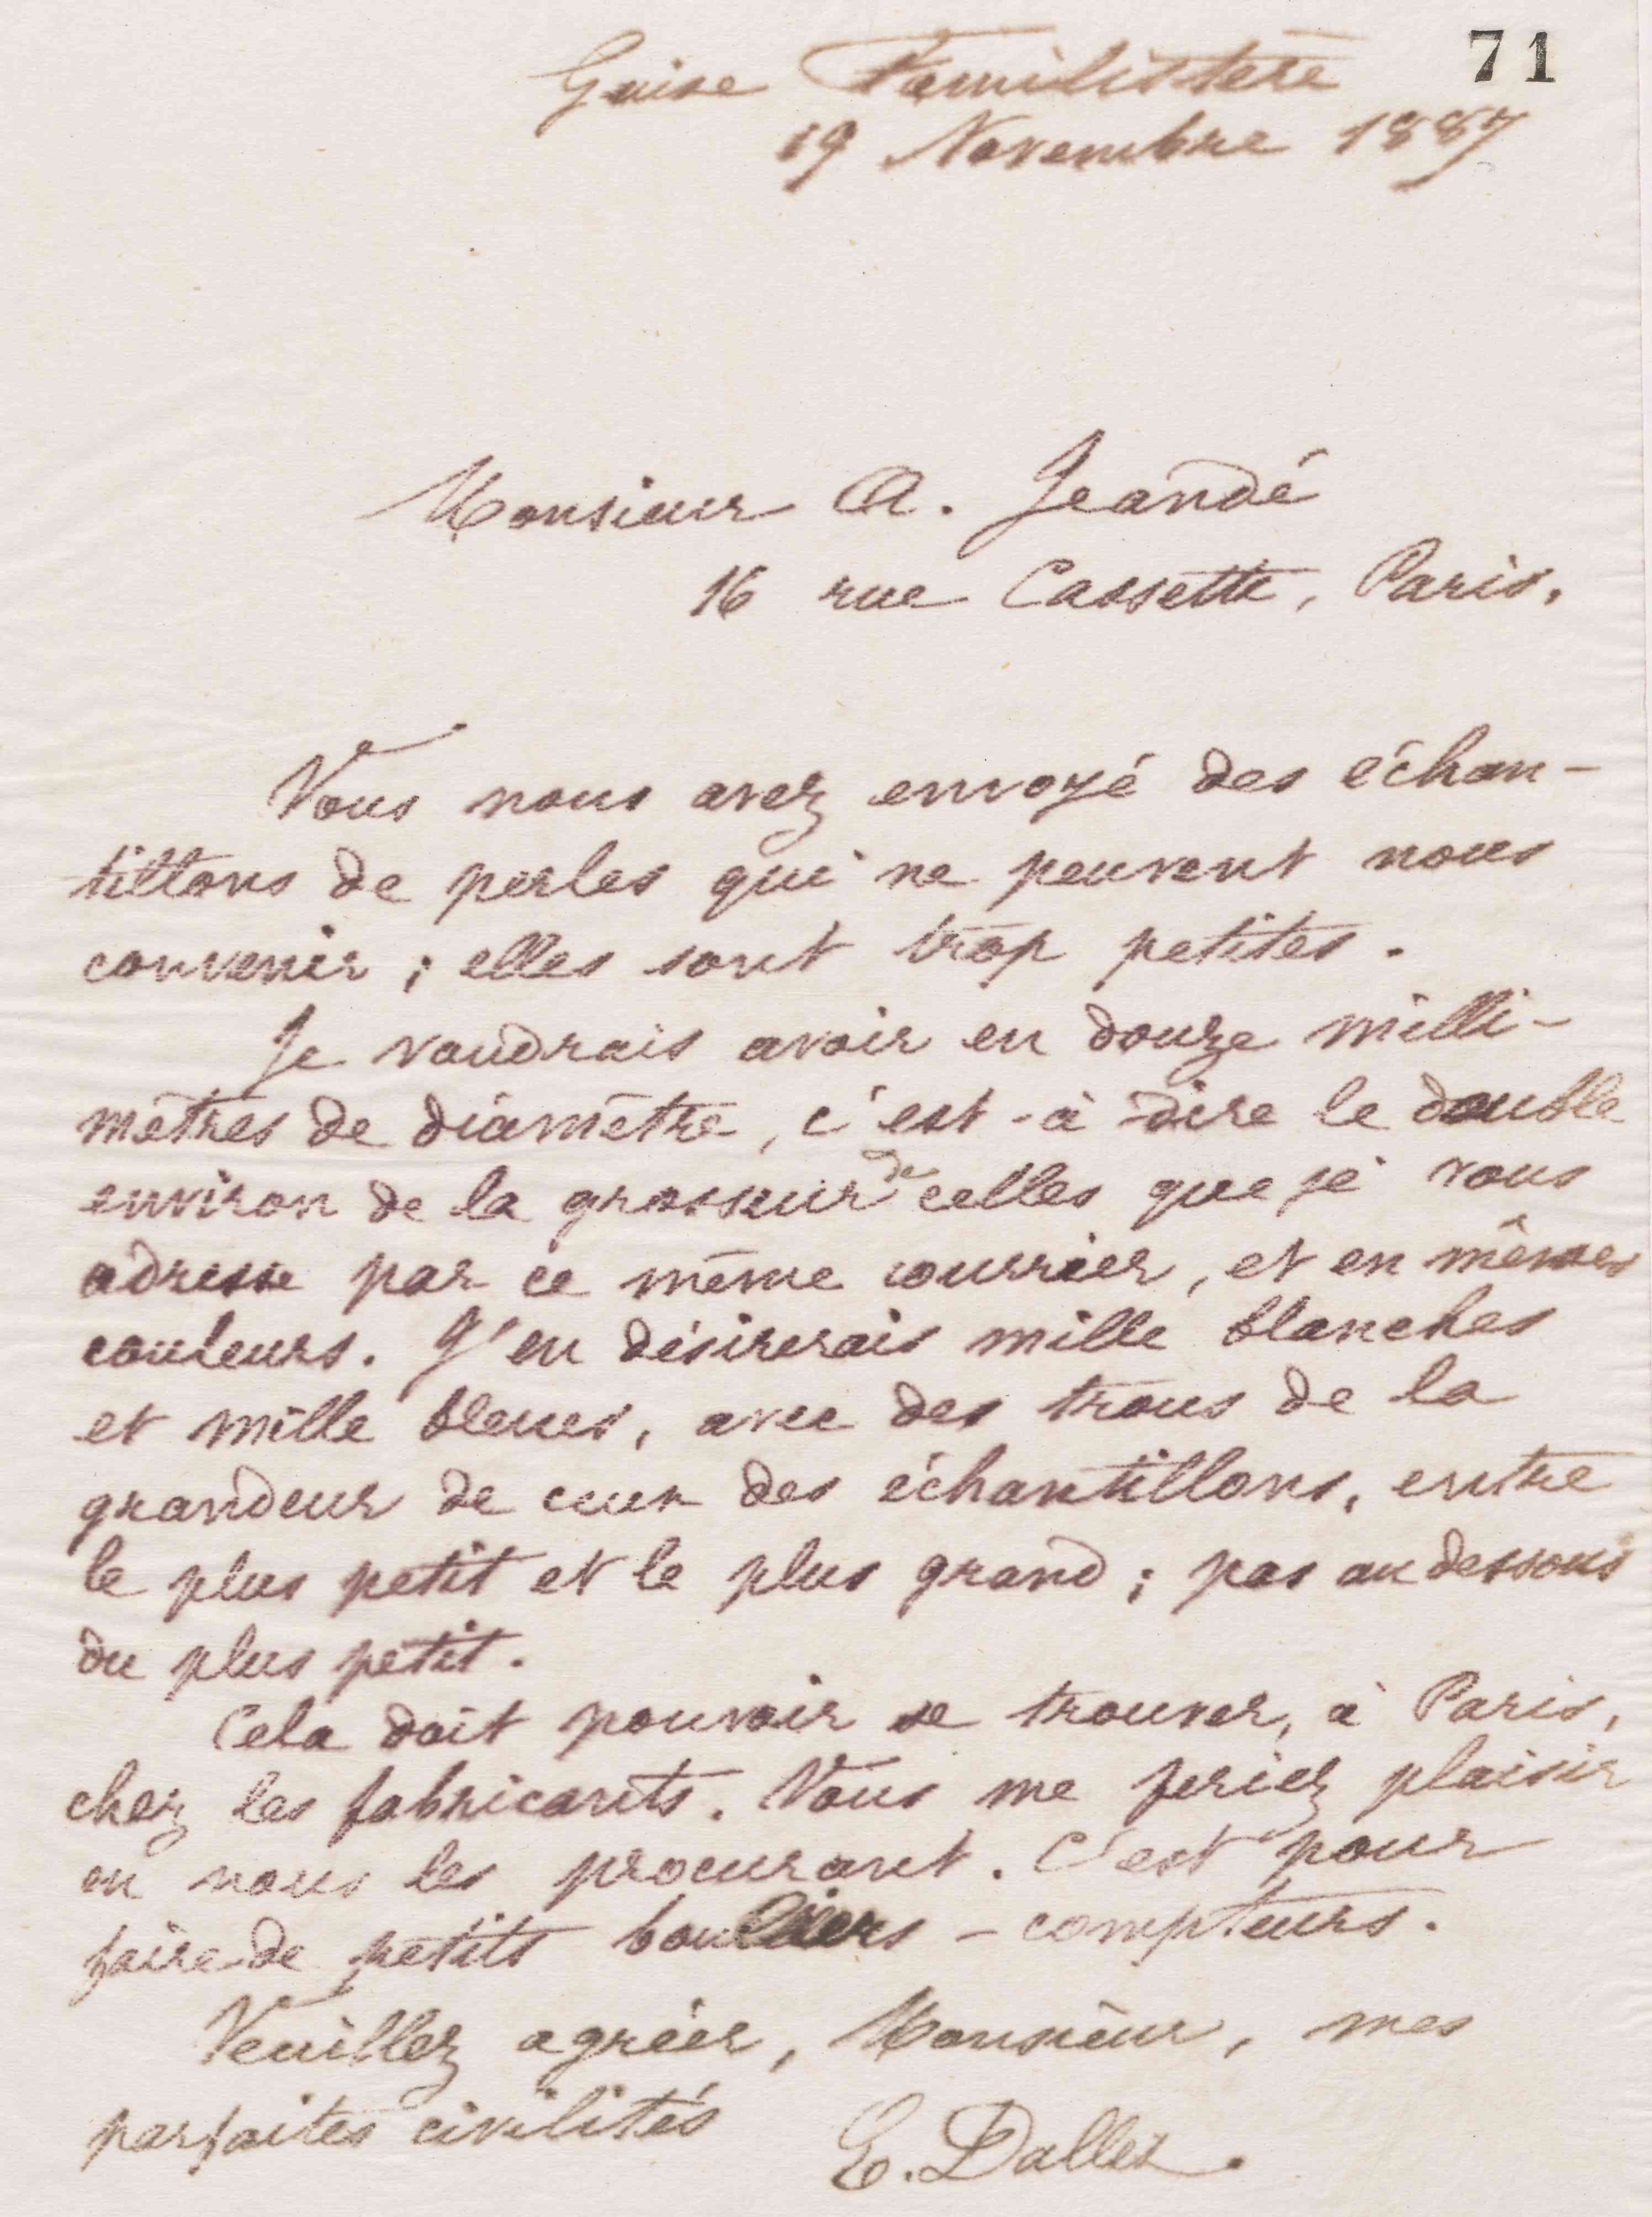 71
Guise Familistère
19 Novembre 1887
Monsieur A. Jeandé
16 rue Cassette, Paris.
Vous nous avez envoyé des échan-
tillons de perles qui ne peuvent nous
convenir ; elles sont trop petites.
Je voudrais avoir en douze milli-
mètres de diamètre, c'est-à-dire le double
environ de la grosseur de celles que je vous
adresse par ce même courrier, et en mêmes
couleurs. J'en désirerais mille blanches
et mille bleues, avec des trous de la
grandeur de ceux des échantillons, entre
le plus petit et le plus grand ; pas au dessous
du plus petit.
Cela doit pouvoir se trouver, à Paris,
chez les fabricants. Vous me feriez plaisir
en nous les procurant. C'est pour
faire de petits bouliers-compteurs.
Veuillez agréer, Monsieur, mes
parfaites civilités
E. Dallet.